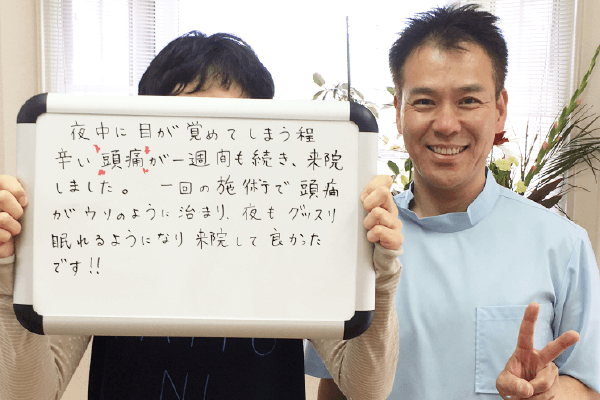 夜中に目が覚めてしまう程
辛い頭痛が一週間も続き、来院
しました。 一回の施術で頭痛
がウソのように治まり、夜もグッスリ
眠れるようになり来院して良かった
です!!